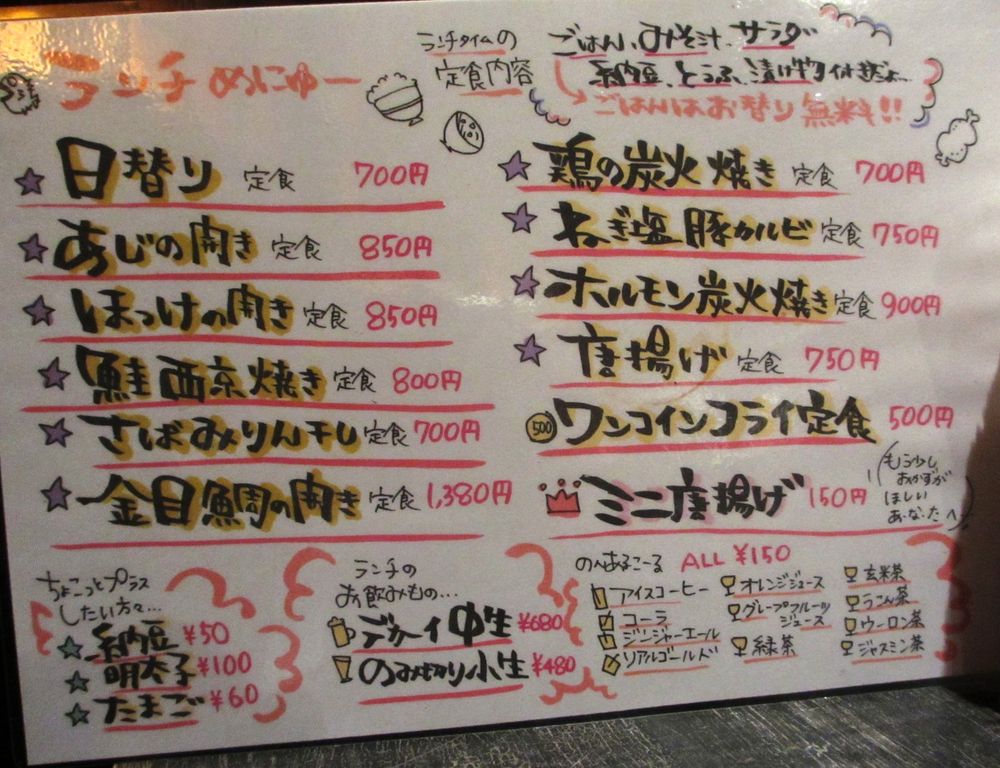 ランチめにゅー
ランチタイムの
定食内容
ごはん、みそ汁、サラダ
納豆、とうふ、漬け物付きだよ
ごはんはお替り無料!!
日替り 定食 700円
あじの開き 定食 850円
ほっけの開き 定食 850円
鮭西京焼き 定食 800円
さばみりん干し 定食 700円
金目鯛の開き 定食 1,380円
鶏の炭火焼き 定食 700円
ねぎ塩豚カルビ 定食 750円
ホルモン炭火焼き 定食 900円
唐揚げ 定食 750円
500 ワンコインフライ定食 500円
ミニ唐揚げ 150円
(もう少し
おかずが
ほしい
あ・な・た・へ)
ちょこっとプラス
したい方々…
納豆 ¥50
明太子 ¥100
たまご ¥60
ランチの
お飲みもの…
デカーイ中生 ¥680
のみきり小生 ¥480
のんあるこーる ALL ¥150
アイスコーヒー
コーラ
ジンジャーエール
リアルゴールド
オレンジジュース
グレープフルーツ
ジュース
緑茶
玄米茶
うこん茶
ウーロン茶
ジャスミン茶